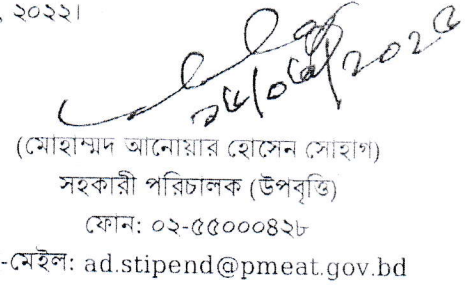 , ২০২২।
(মোহাম্মদ আনোয়ার হোসেন সোহাগ)
সহকারী পরিচালক (উপবৃত্তি)
ফোন: ০২-৫৫০০০৪২৮
-মেইল: ad.stipend@pmeat.gov.bd